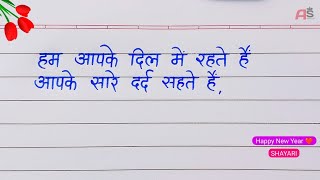 AS
हम आपके दिल में रहते हैं
आपके सारे दर्द सहते हैं,
Happy New Year ❤️
SHAYARI